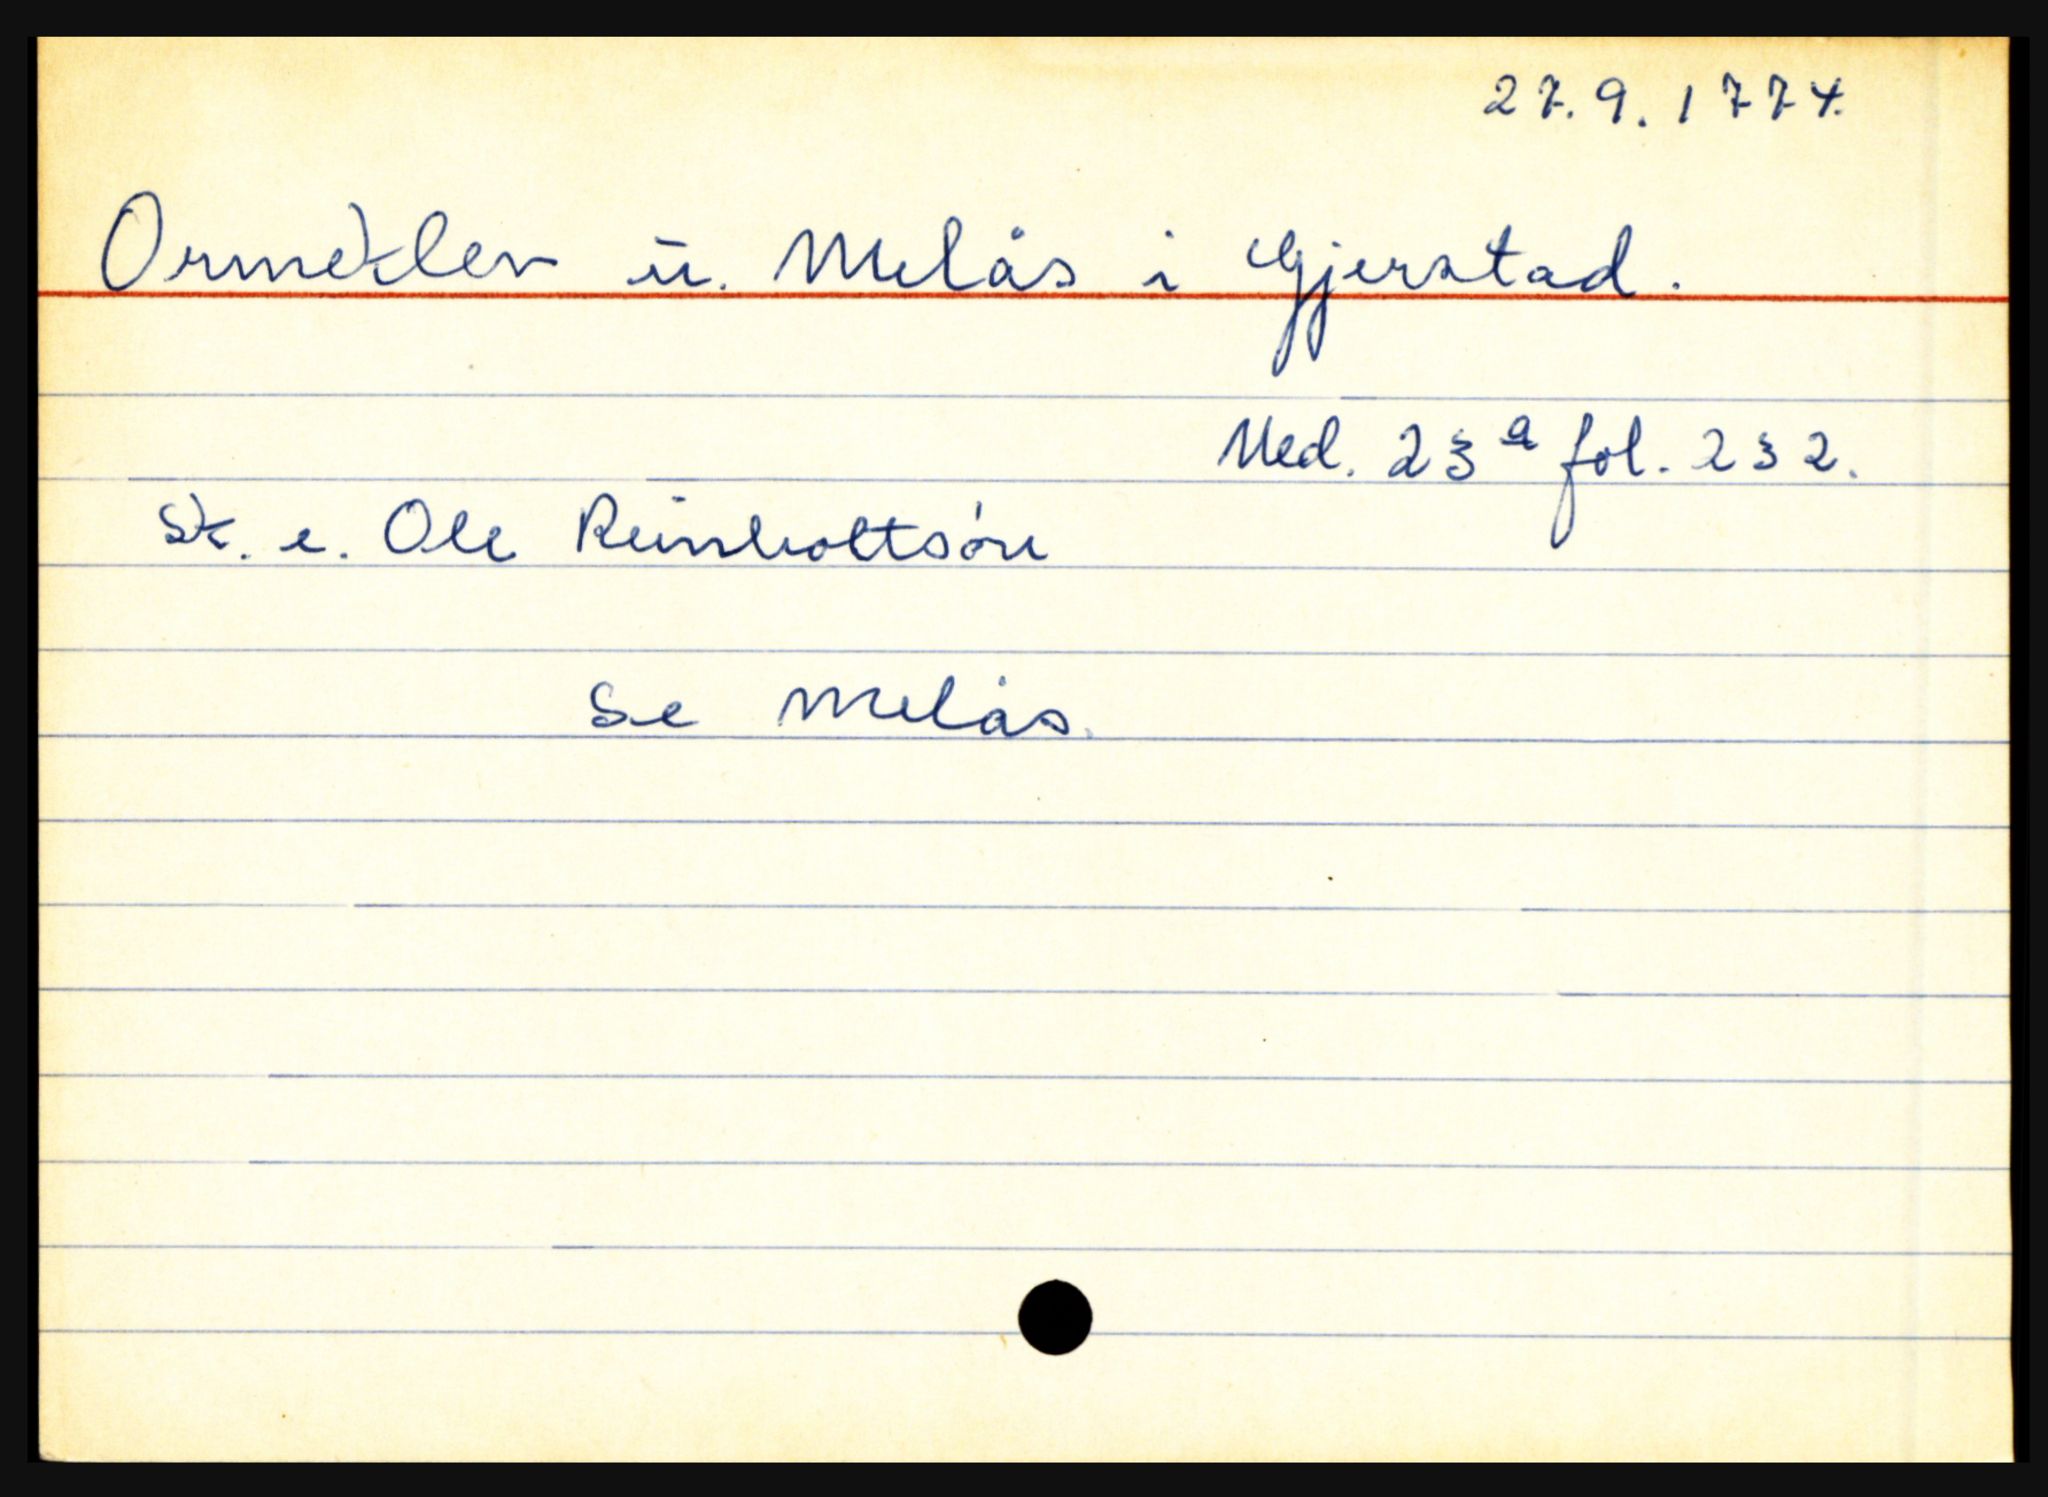 27.9.1774.
Ormeklev u. Melås i Gjerstad.
Ned. 23 a fol. 232.
Sk. e. Ole Reinholtsön
Se Melås.